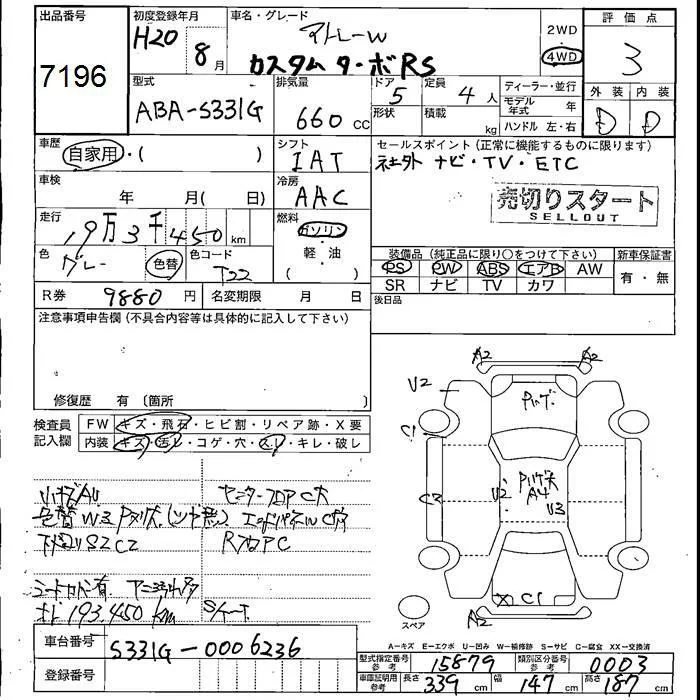 出品番号
7196
初度登録年月
H20 8月
車名・グレード
アトレーW
カスタム ターボRS
2WD
4WD
評価点
3
型式
ABA-S331G
排気量
660 CC
ドア 5
形状
定員 4人
積載 kg
ディーラー・並行
モデル年式 年
ハンドル 左・右
外装 内装
D D
車歴
自家用・( )
シフト
IAT
セールスポイント(正常に機能するものに限ります)
社外 ナビ・TV・ETC
売切りスタート
SELLOUT
車検
年 月( 日)
冷房
AAC
走行
19万3千450km
燃料
ガソリン
軽・油
( )
色
グレー
色替
色コード
T22
装備品(純正品に限り○をつけて下さい)
新車保証書
PS PW ABS エアB AW
SR ナビ TV カワ
有・無
R券 9880円
名変期限 月 日
後日品
注意事項申告欄(不具合内容等は具体的に記入して下さい)
修復歴 有〔箇所 〕
検査員記入欄
FW キズ・飛石・ヒビ割・リペア跡・X要
内装 キズ・汚レ・コゲ・穴・スレ・キレ・破レ
色替 W3
下廻りS2C2
シートカバー有
193,450 km
A2 A2
U2
C1
C2
U2
A4
U3
C1
A2
スペア
車台番号
S331G-0006236
登録番号
A=キズ E=エクボ U=凹み W=補修跡 S=サビ C=腐食 XX=交換済
型式指定番号 参考 15879
類別区分番号 参考 0003
車庫証明用 参考 長さ 339 cm 幅 147 cm 高さ 187 cm